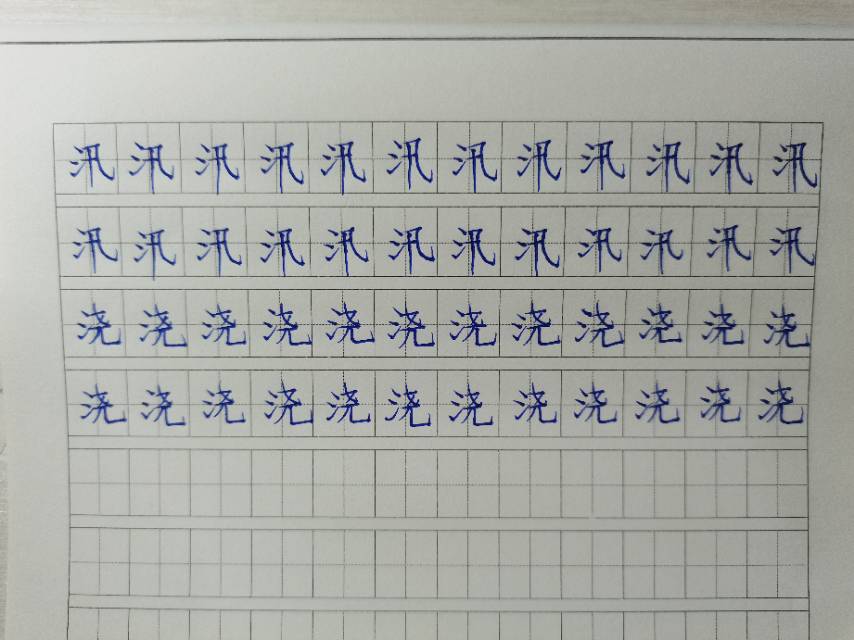 汛汛汛汛汛汛汛汛汛汛汛汛
汛汛汛汛汛汛汛汛汛汛汛汛
浇浇浇浇浇浇浇浇浇浇浇浇
浇浇浇浇浇浇浇浇浇浇浇浇